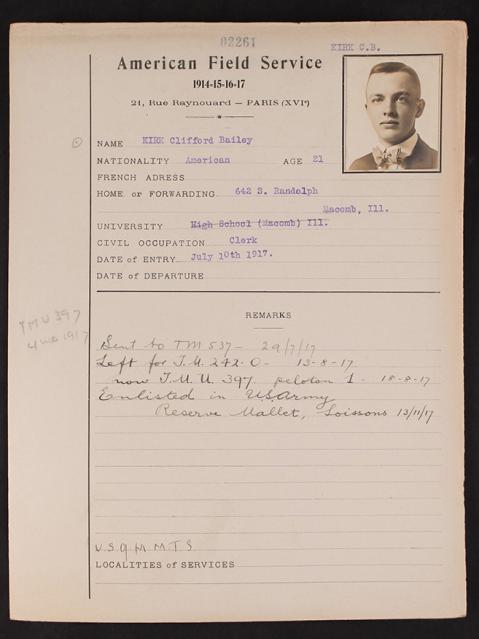 02261
KIRK C.B.
American Field Service
1914-15-16-17
21, Rue Raynouard — PARIS (XVIe)
NAME KIRK Clifford Bailey
NATIONALITY American AGE 21
FRENCH ADRESS
HOME or FORWARDING 642 S. Randolph
Macomb, Ill.
UNIVERSITY High School (Macomb) Ill.
CIVIL OCCUPATION Clerk
DATE of ENTRY July 10th 1917.
DATE of DEPARTURE
REMARKS
TMU 397
4 mo 1917
Sent to TM 537 - 29/7/17
Left for T.M. 242-O - 13-8-17
now T.M.U. 397 peloton 1 - 18-8-17
Enlisted in U.S. Army
Reserve Mallet, Soissons 13/11/17
U.S.Q.M.M.T.S
LOCALITIES of SERVICES